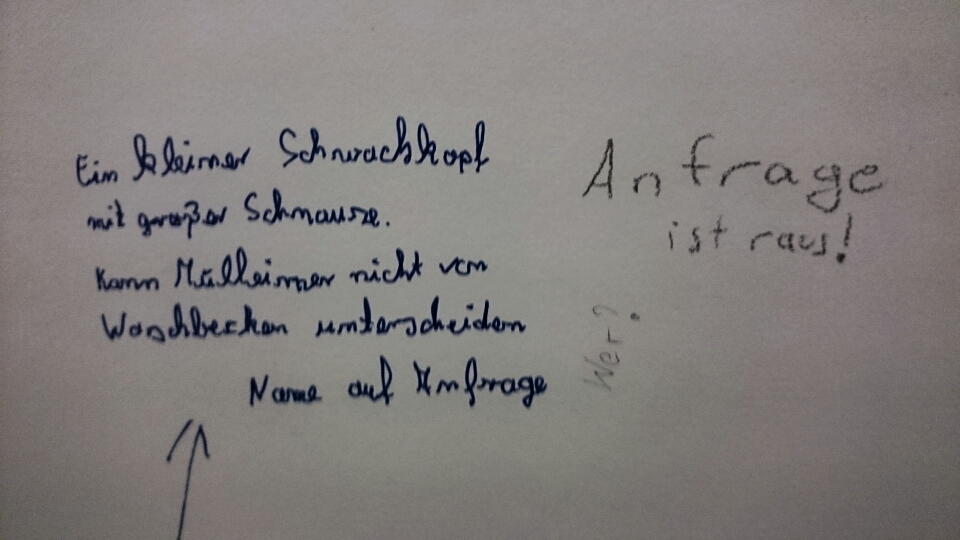 Ein kleiner Schwachkopf
mit großer Schnauze.
Kann Mülleimer nicht von
Waschbecken unterscheiden
Name auf Anfrage
Anfrage
ist raus!
Wer?